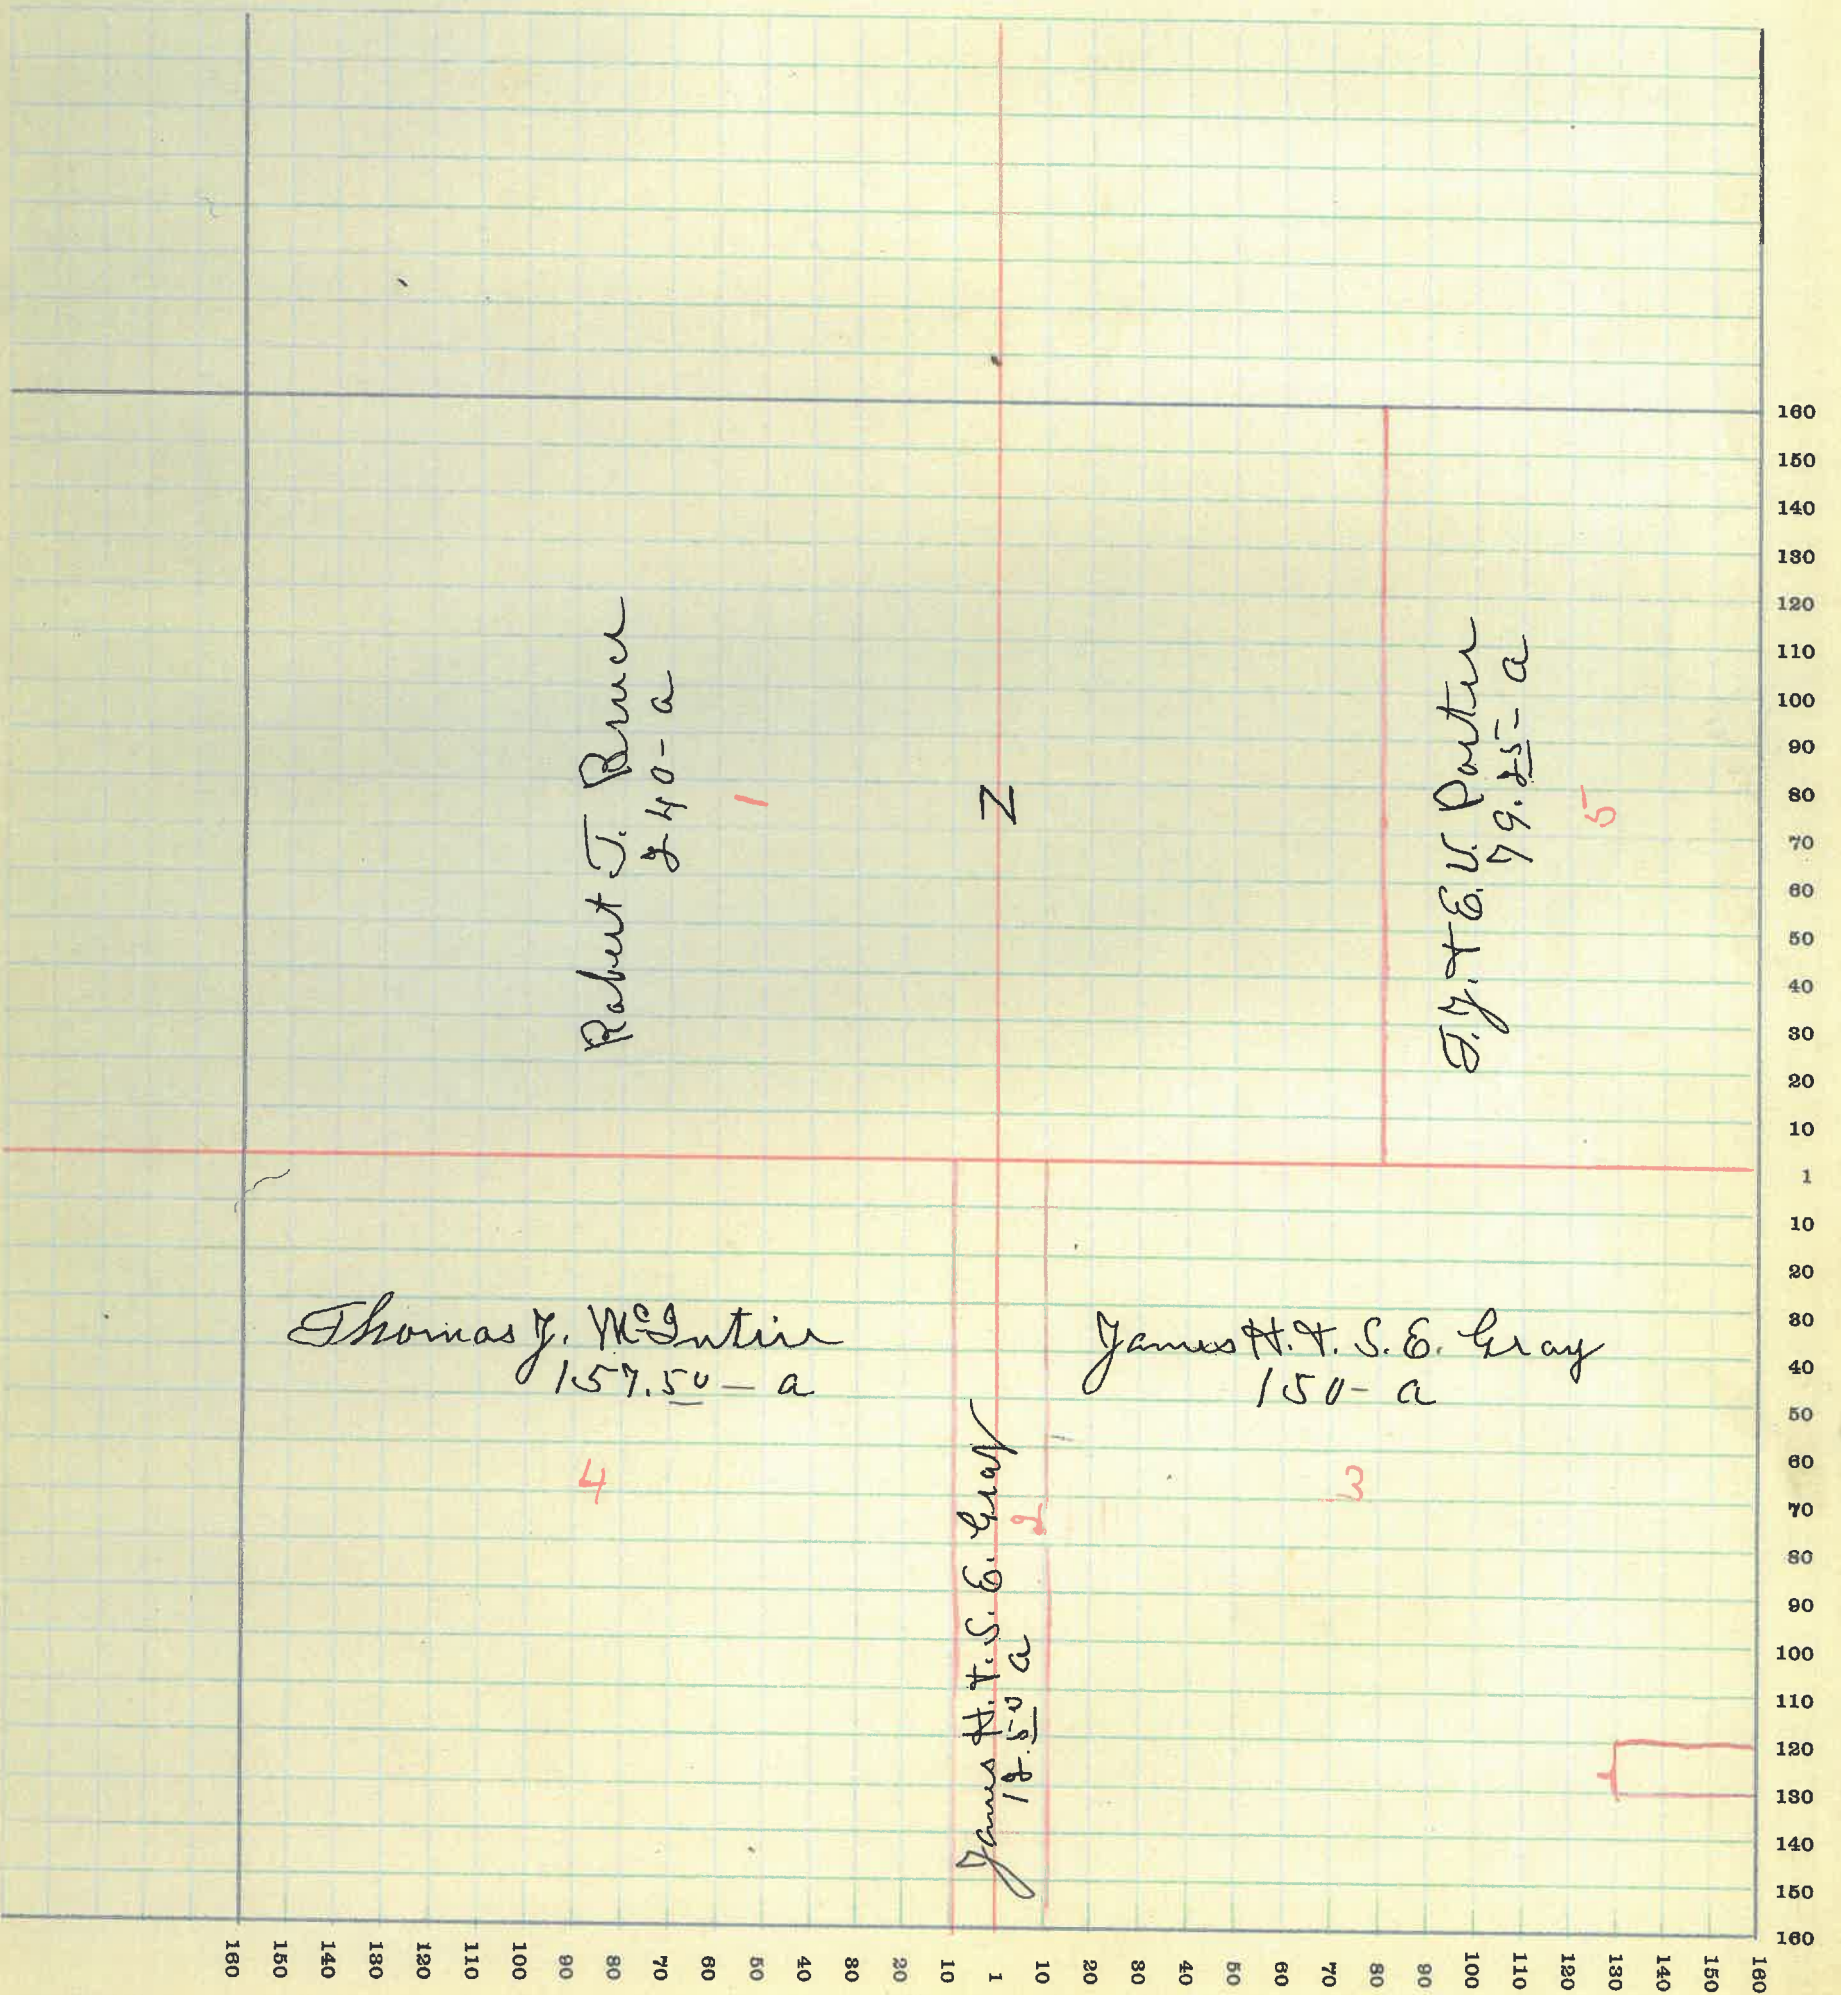 Robert J. Bruce
240 - a
1
N
J. Y. + E. V. Porter
79.25 - a
5
Thomas J. McIntire
157.50 - a
4
James H. + S. E. Gray
12.50 a
2
James H. + S. E. Gray
150 - a
3
160
150
140
130
120
110
100
90
80
70
60
50
40
30
20
10
1
10
20
30
40
50
60
70
80
90
100
110
120
130
140
150
160
160 150 140 130 120 110 100 90 80 70 60 50 40 30 20 10 1 10 20 30 40 50 60 70 80 90 100 110 120 130 140 150 160